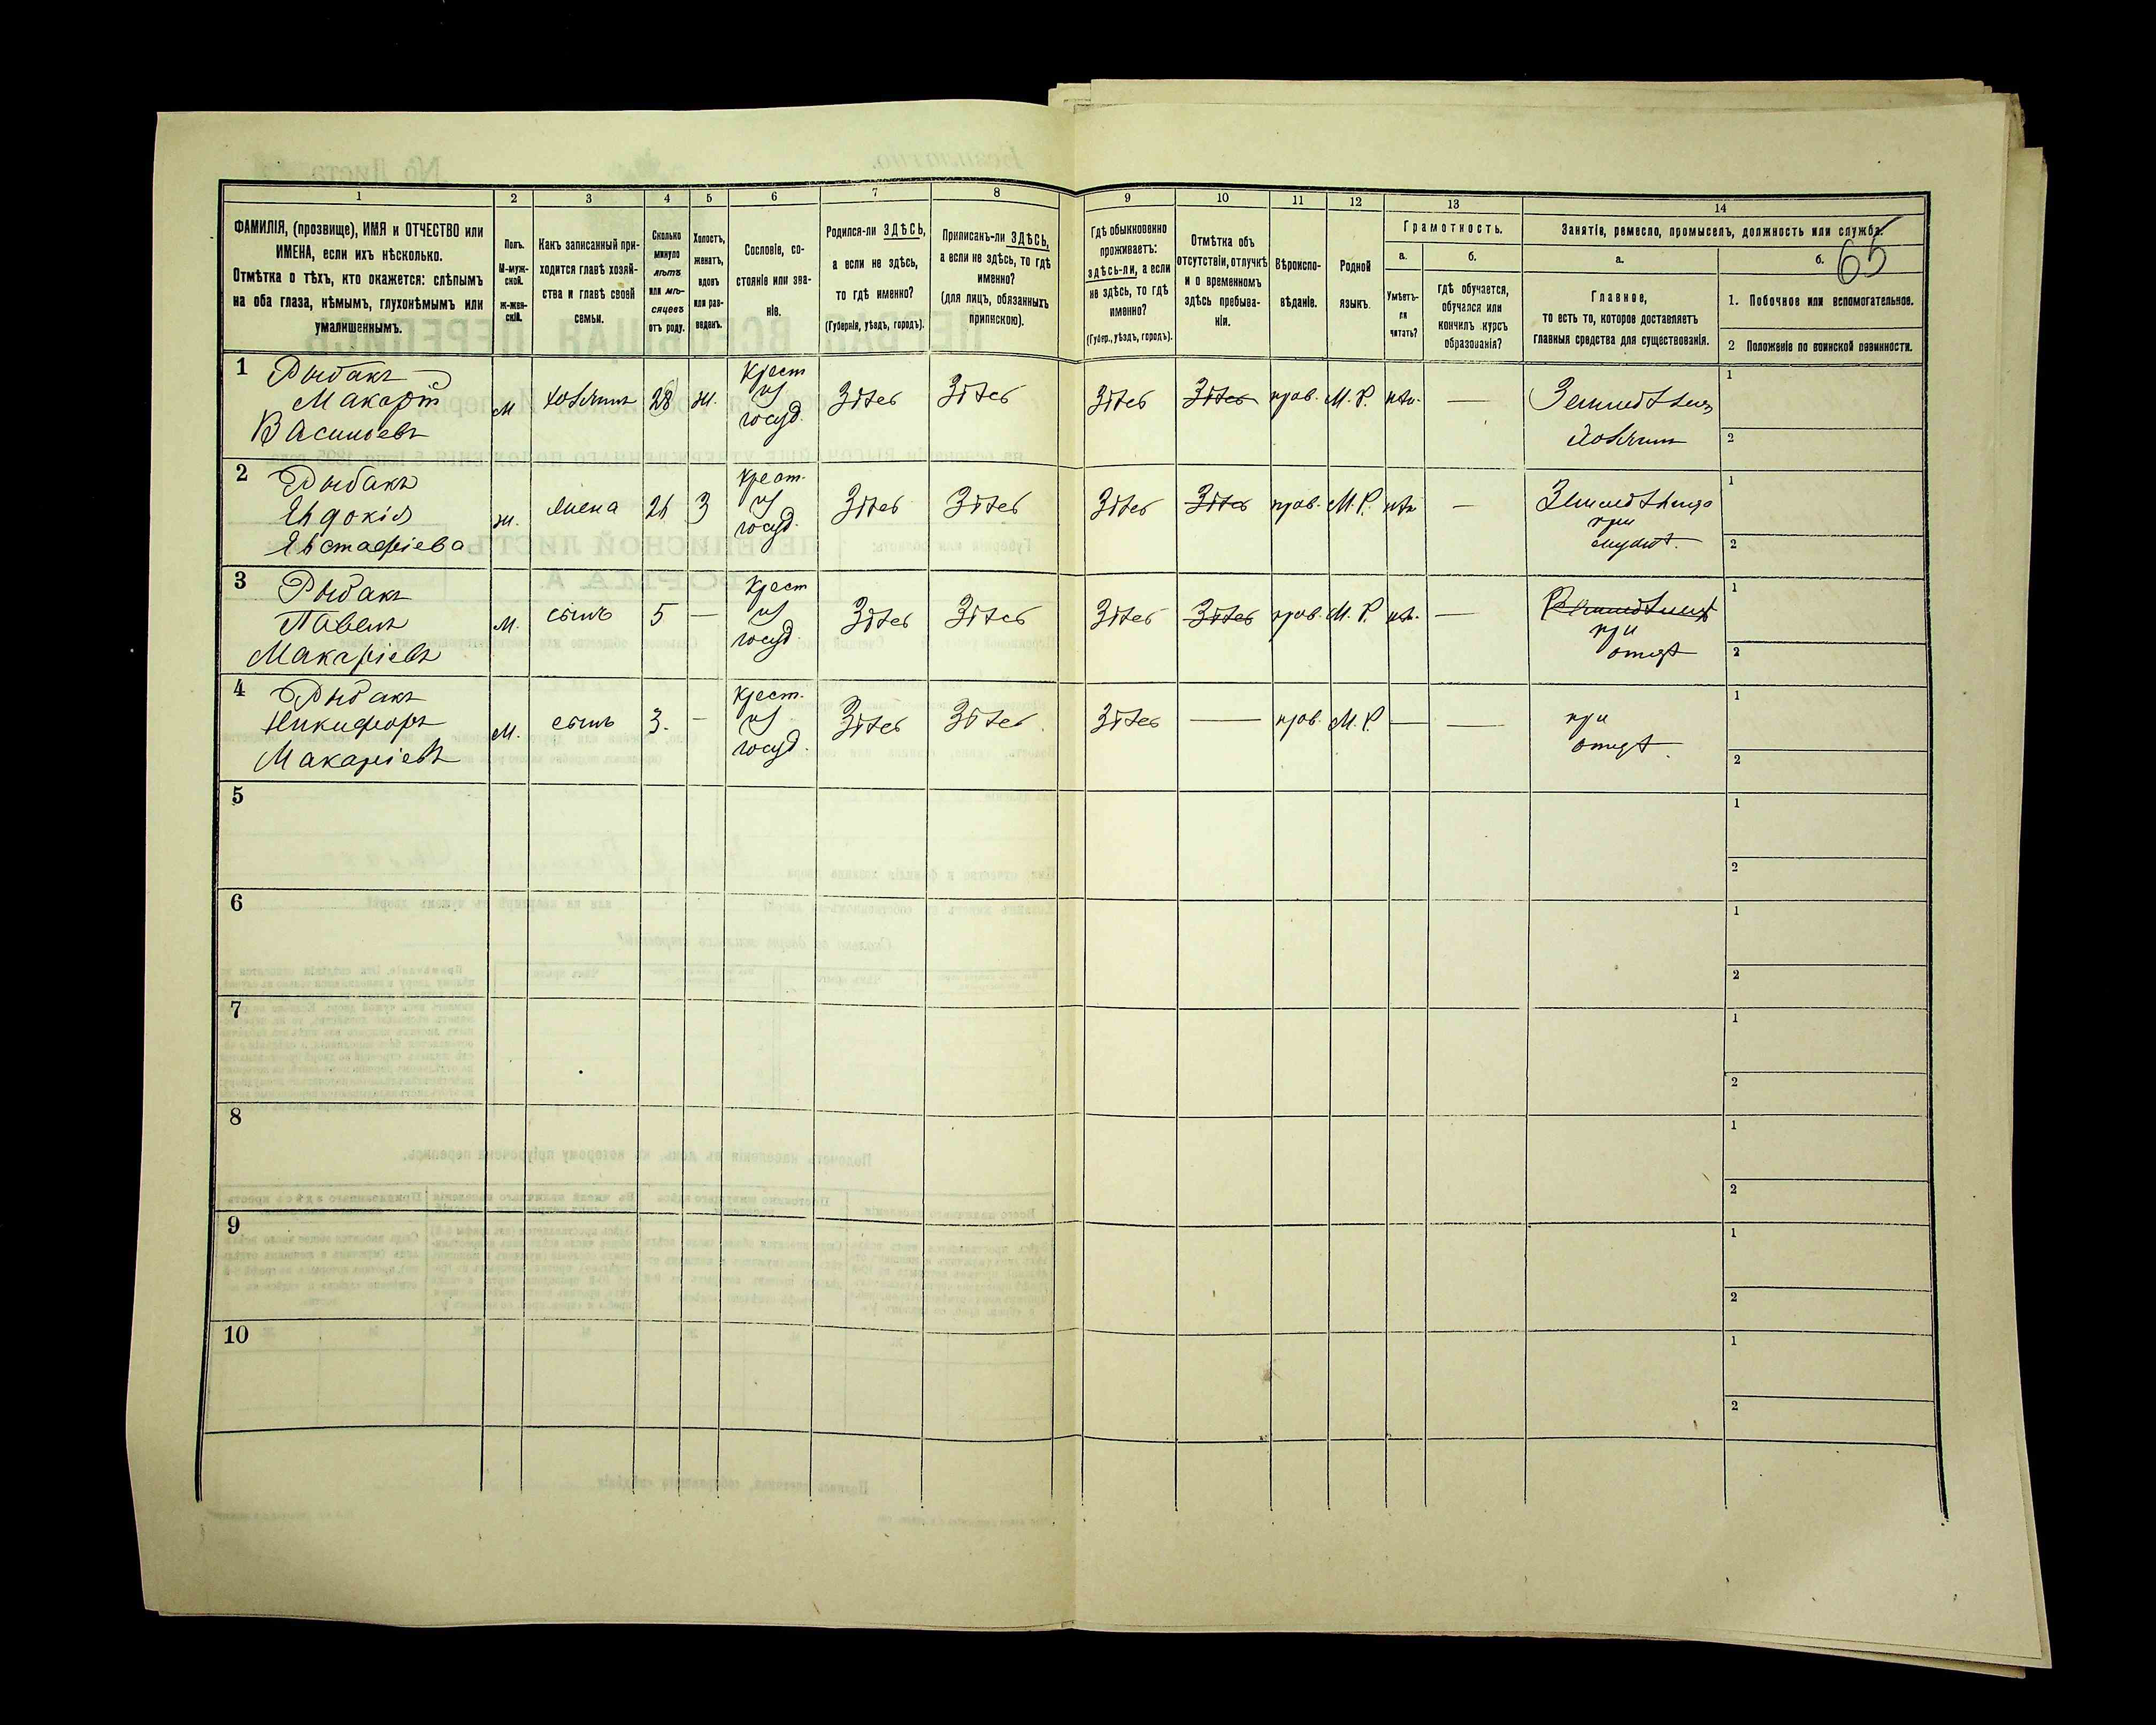 1 2 3 4 5 6 7 8 9 10 11 12 13 14
ФАМИЛІЯ, (прозвище), ИМЯ и ОТЧЕСТВО или
ИМЕНА, если ихъ нѣсколько.
Отмѣтка о тѣхъ, кто окажется: слѣпымъ
на оба глаза, нѣмымъ, глухонѣмымъ или
умалишеннымъ.
Полъ.
М-муж-
ской.
Ж-жен-
скій.
Какъ записанный при-
ходится главѣ хозяй-
ства и главѣ своей
семьи.
Сколько
минуло
лѣтъ
или мѣ-
сяцевъ
отъ роду.
Холостъ,
женатъ,
вдовъ
или раз-
веденъ.
Сословіе, со-
стояніе или зва-
ніе.
Родился-ли ЗДѢСЬ,
а если не здѣсь,
то гдѣ именно?
(Губернія, уѣздъ, городъ).
Приписанъ-ли ЗДѢСЬ,
а если не здѣсь, то гдѣ
именно?
(для лицъ, обязанныхъ
припискою).
Гдѣ обыкновенно
проживаетъ:
здѣсь-ли, а если
не здѣсь, то гдѣ
именно?
(Губер., уѣздъ, городъ).
Отмѣтка объ
отсутствіи, отлучкѣ
и о временномъ
здѣсь пребыва-
ніи.
Вѣроиспо-
вѣданіе.
Родной
языкъ.
Грамотность.
а.
Умѣетъ-
ли
читать?
б.
гдѣ обучается,
обучался или
кончилъ курсъ
образованія?
Занятіе, ремесло, промыселъ, должность или служба.
65
а.
Главное,
то есть то, которое доставляетъ
главныя средства для существованія.
б.
1. Побочное или вспомогательное.
2 Положеніе по воинской повинности.
1 Рыбакъ
Макарій
Васильевъ
м хозяинъ 28 ж.
Крест
из
госуд.
Здѣсь Здѣсь Здѣсь Здѣсь прав. М. Р. нѣт. —
Земледѣлец
хозяинъ
1
2
2 Рыбакъ
Явдокія
Явстафіева
ж. жена 3
Крест.
из
госуд.
Здѣсь Здѣсь Здѣсь Здѣсь прав. М. Р. нѣт —
при
мужѣ.
1
2
3 Рыбакъ
Павелъ
Макаріевъ
м. сынъ 5 —
Крест
из
госуд.
Здѣсь Здѣсь Здѣсь Здѣсь прав. М. Р. нѣт. —
при
отцѣ
1
2
4 Рыбакъ
Никифоръ
Макаріевъ
м. сынъ 3. —
Крест.
из
госуд.
Здѣсь Здѣсь Здѣсь — прав. М. Р. — —
при
отцѣ.
1
2
5
1
2
6
1
2
7
1
2
8
1
2
9
1
2
10
1
2